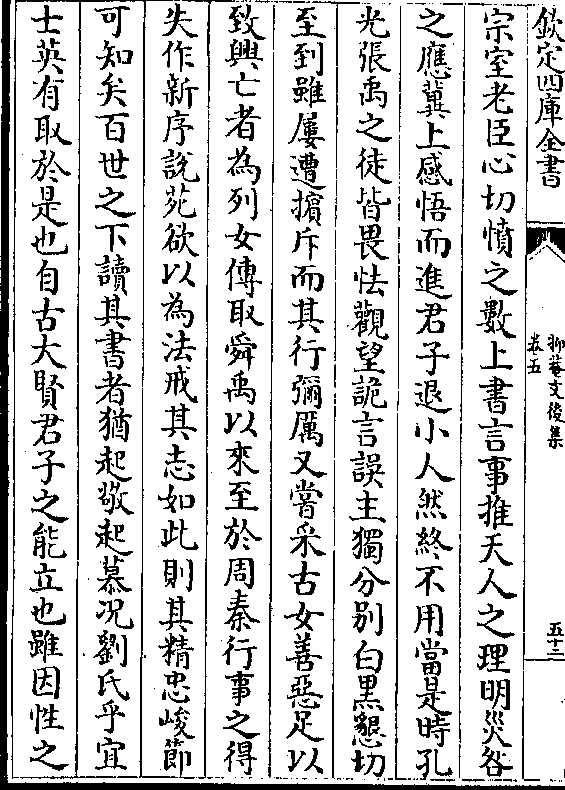 欽定四庫全書
抑菴文後集
卷五
五十二
宗室老臣心切憤之數上書言事推天人之理明災咎
之應冀上感悟而進君子退小人然終不用當是時孔
光張禹之徒皆畏怯觀望詭言誤主獨分别白黒懇切
至到雖屢遭擯斥而其行彌厲又嘗采古女善惡足以
致興亡者為列女傳取舜禹以來至於周秦行事之得
失作新序説苑欲以為法戒其志如此則其精忠峻節
可知矣百世之下讀其書者猶起敬起慕况劉氏乎宜
士英有取於是也自古大賢君子之能立也雖因性之